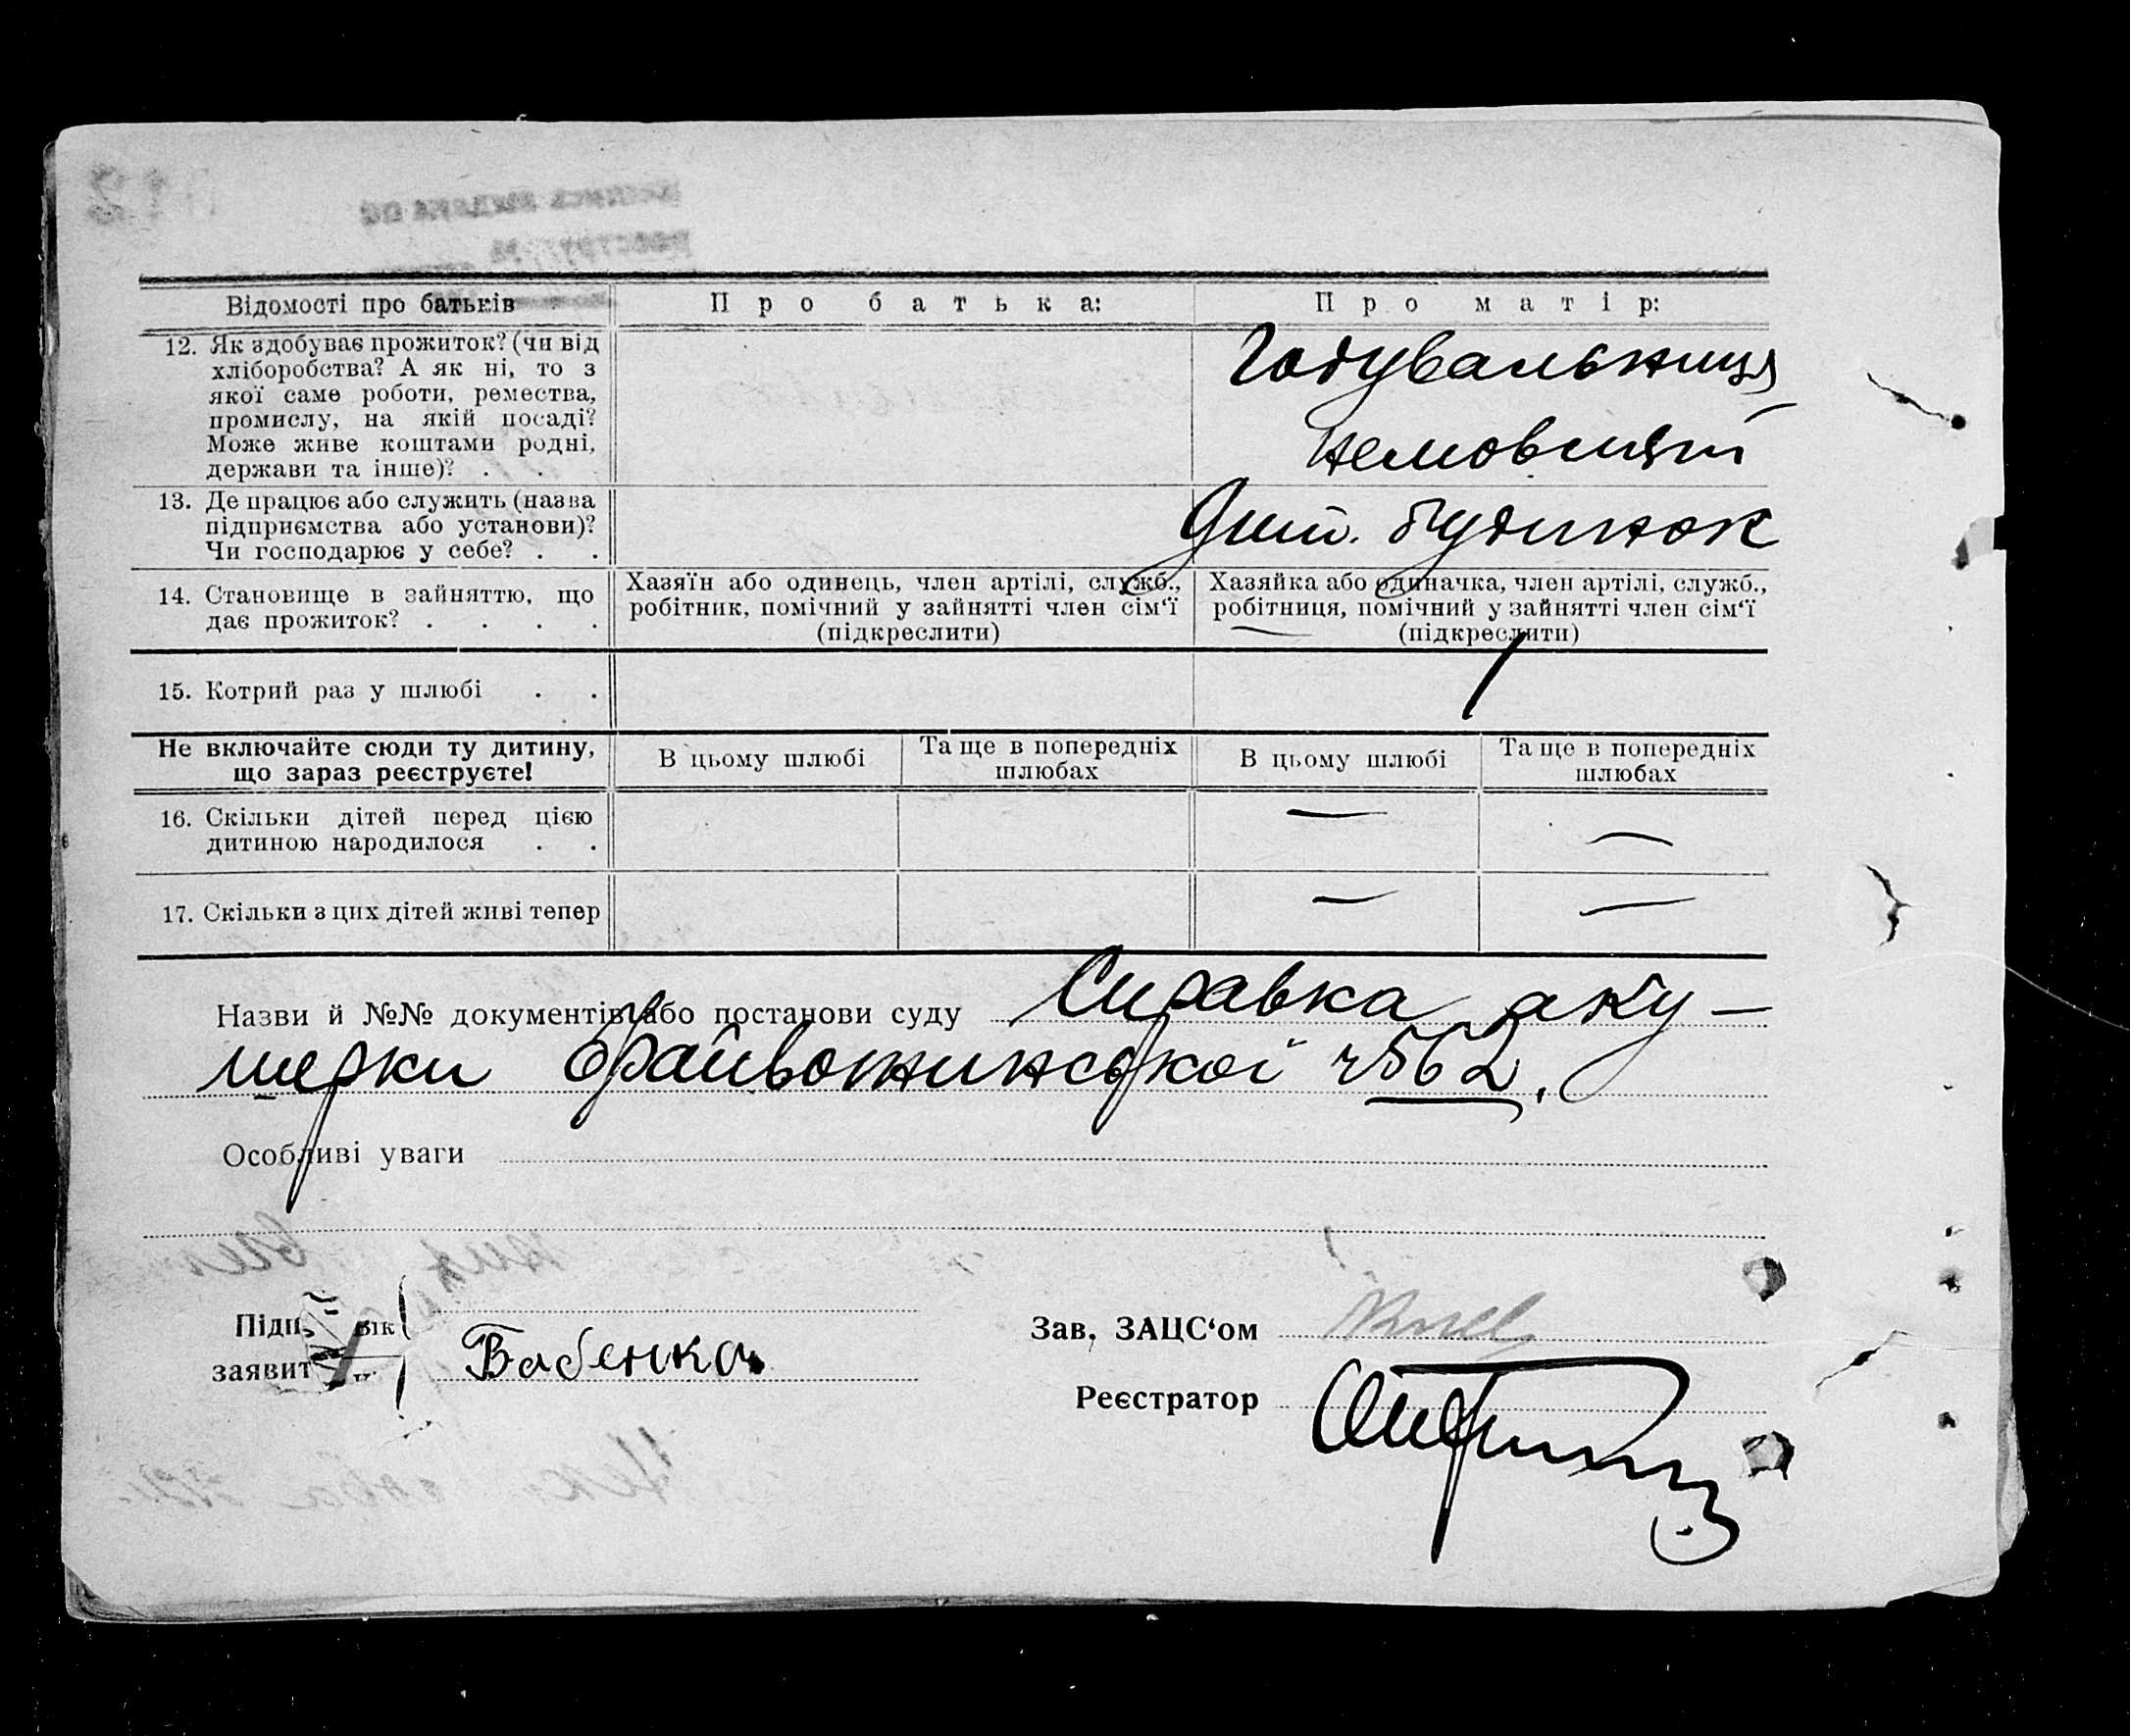 Відомості про батьків
Про батька:
Про матір:
12. Як здобуває прожиток? (чи від
хліборобства? А як ні, то з
якої саме роботи, ремества,
промислу, на якій посаді?
Може живе коштами родні,
держави та інше)? . .
Годувальниця
немовлят
13. Де працює або служить (назва
підприємства або установи)?
Чи господарює у себе? . .
Дит. будинок
14. Становище в зайняттю, що
дає прожиток? . . . .
Хазяїн або одинець, член артілі, служб.,
робітник, помічний у зайнятті член сім'ї
(підкреслити)
Хазяйка або одиначка, член артілі, служб.,
робітниця, помічний у зайнятті член сім'ї
(підкреслити)
15. Котрий раз у шлюбі . .
1
Не включайте сюди ту дитину,
що зараз реєструєте!
В цьому шлюбі
Та ще в попередніх
шлюбах
В цьому шлюбі
Та ще в попередніх
шлюбах
16. Скільки дітей перед цією
дитиною народилося . .
—
—
17. Скільки з цих дітей живі тепер
—
—
Назви й №№ документів або постанови суду Справка аку-
шерки ч562.
Особливі уваги
Підп. вік
заявит
Бабенко
Зав. ЗАЦС'ом
Реєстратор